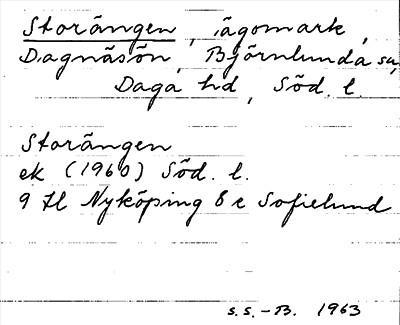 Storängen, ägomark,
Dagnäsön, Björnlunda sn,
Daga hd, Söd. l.
Storängen
ek (1960) Söd. l.
9 H Nyköping 8 e Sofielund
S.S.-B. 1963